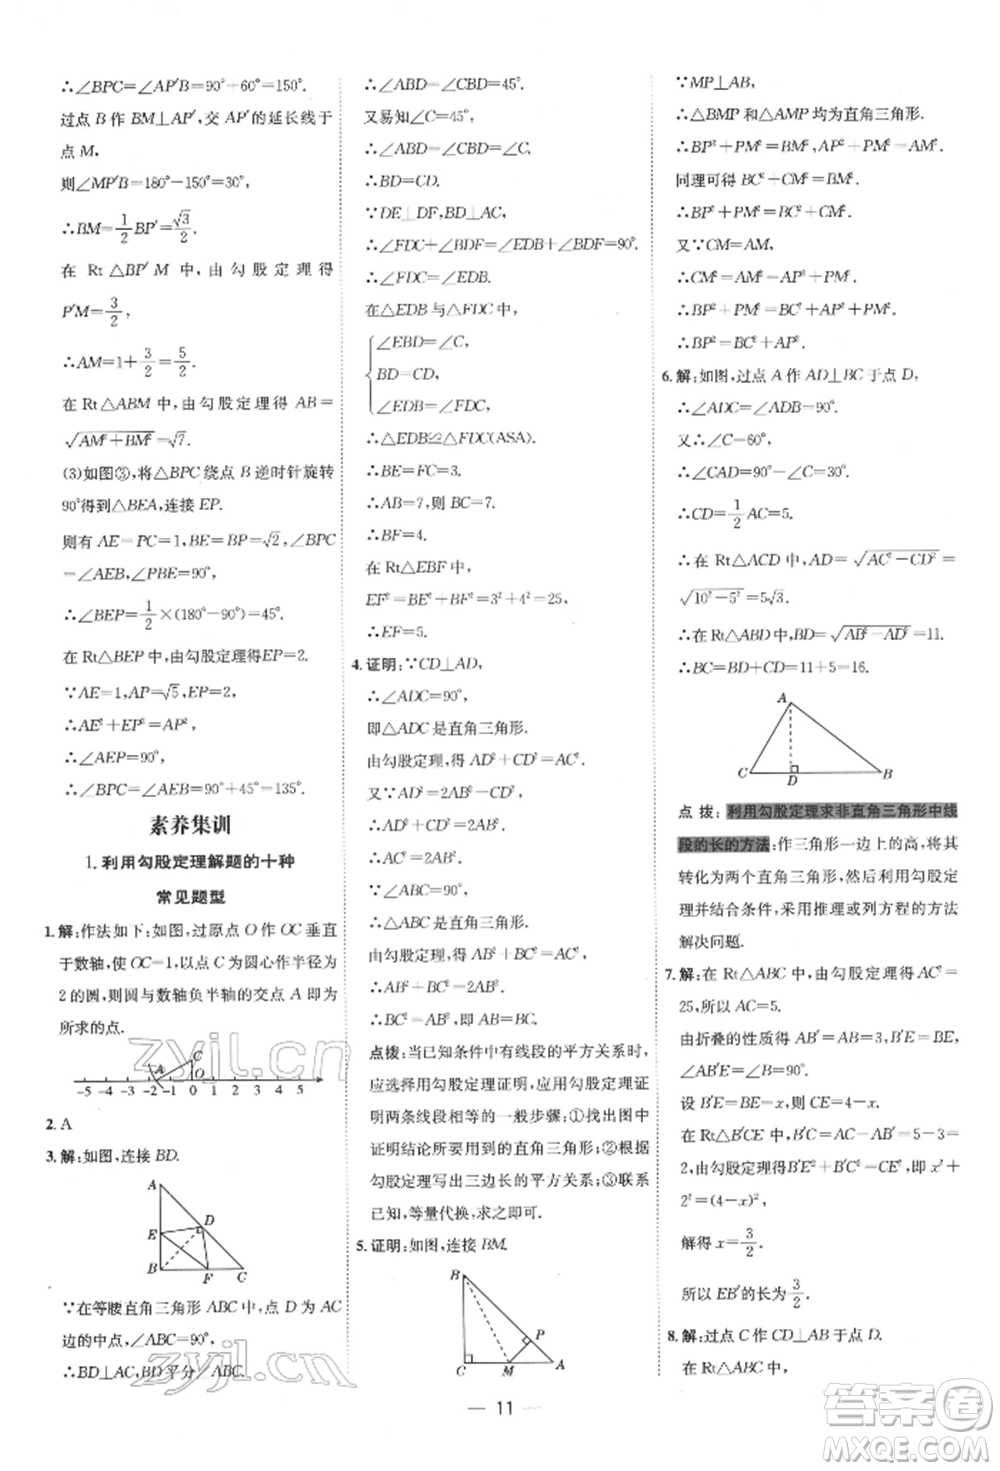 ∴∠BPC=∠AP′B=90°+60°=150°.
过点 B 作 BM⊥AP′,交 AP′的延长线于
点 M,
则∠MP′B=180°-150°=30°,
∴BM=1/2BP′=√3/2.
在 Rt△BP′M 中,由勾股定理得
P′M=3/2,
∴AM=1+3/2=5/2.
在 Rt△ABM 中,由勾股定理得 AB=
√(AM²+BM²)=√7.
(3)如图③,将△BPC 绕点 B 逆时针旋转
90°得到△BEA,连接 EP.
则有 AE=PC=1,BE=BP=√2,∠BPC
=∠AEB,∠PBE=90°.
∴∠BEP=1/2×(180°-90°)=45°.
在 Rt△BEP 中,由勾股定理得EP=2.
∵AE=1,AP=√5,EP=2,
∴AE²+EP²=AP²,
∴∠AEP=90°.
∴∠BPC=∠AEB=90°+45°=135°.
素养集训
1.利用勾股定理解题的十种
常见题型
1.解:作法如下:如图,过原点 O 作 OC 垂直
于数轴,使 OC=1,以点 C 为圆心作半径为
2 的圆,则圆与数轴负半轴的交点 A 即为
所求的点.
C
A O
-5 -4 -3 -2 -1 0 1 2 3 4 5
2.A
3.解:如图,连接 BD.
A
D
E
B F C
∵在等腰直角三角形 ABC 中,点 D 为 AC
边的中点,∠ABC=90°,
∴BD⊥AC,BD 平分∠ABC.
∴∠ABD=∠CBD=45°.
又易知∠C=45°,
∴∠ABD=∠CBD=∠C.
∴BD=CD.
∵DE⊥DF,BD⊥AC,
∴∠FDC+∠BDF=∠EDB+∠BDF=90°.
∴∠FDC=∠EDB.
在△EDB 与△FDC 中,
∠EBD=∠C,
BD=CD,
∠EDB=∠FDC,
∴△EDB≌△FDC(ASA).
∴BE=FC=3.
∴AB=7,则 BC=7.
∴BF=4.
∴在 Rt△EBF 中,
EF²=BE²+BF²=3²+4²=25,
∴EF=5.
4.证明:∵CD⊥AD,
∴∠ADC=90°,
即△ADC 是直角三角形.
由勾股定理,得 AD²+CD²=AC².
又∵AD²=2AB²-CD²,
∴AD²+CD²=2AB².
∴AC²=2AB².
∵∠ABC=90°,
∴△ABC 是直角三角形.
由勾股定理,得 AB²+BC²=AC²,
∴AB²+BC²=2AB².
∴BC²=AB²,即 AB=BC.
点拨:当已知条件中有线段的平方关系时,
应选择用勾股定理证明,应用勾股定理
证明两条线段相等的一般步骤:①找出图中
证明结论所要用到的直角三角形;②根据
勾股定理写出三边长的平方关系;③联系
已知,等量代换,求之即可.
5.证明:如图,连接 BM.
B
P
C M A
∵MP⊥AB,
∴△BMP 和△AMP 均为直角三角形.
∴BP²+PM²=BM²,AP²+PM²=AM².
同理可得 BC²+CM²=BM²,
∴BP²+PM²=BC²+CM².
又∵CM=AM,
∴CM²=AM²=AP²+PM².
∴BP²+PM²=BC²+AP²+PM².
∴BP²=BC²+AP².
6.解:如图,过点 A 作 AD⊥BC 于点 D,
∴∠ADC=∠ADB=90°.
又∵∠C=60°,
∴∠CAD=90°-∠C=30°.
∴CD=1/2AC=5.
∴在 Rt△ACD 中,AD=√(AC²-CD²)=
√(10²-5²)=5√3.
∴在 Rt△ABD 中,BD=√(AB²-AD²)=11.
∴BC=BD+CD=11+5=16.
A
C D B
点拨:利用勾股定理求非直角三角形中线
段的长的方法:作三角形一边上的高,将其
转化为两个直角三角形,然后利用勾股定
理并结合条件,采用推理或列方程的方法
解决问题.
7.解:在 Rt△ABC 中,由勾股定理得 AC²=
25,所以 AC=5.
由折叠的性质得 AB′=AB=3,B′E=BE,
∠AB′E=∠B=90°.
设 B′E=BE=x,则 CE=4-x,
在 Rt△B′CE 中,B′C=AC-AB′=5-3=2,
由勾股定理得B′E²+B′C²=CE²,即 x²+
2²=(4-x)²,
解得 x=3/2.
所以 EB′的长为3/2.
8.解:过点 C 作 CD⊥AB 于点 D.
在 Rt△ACD 中,
— 11 —
zyjl.cn
zyjl.cn
答案圈
MXQE.COM